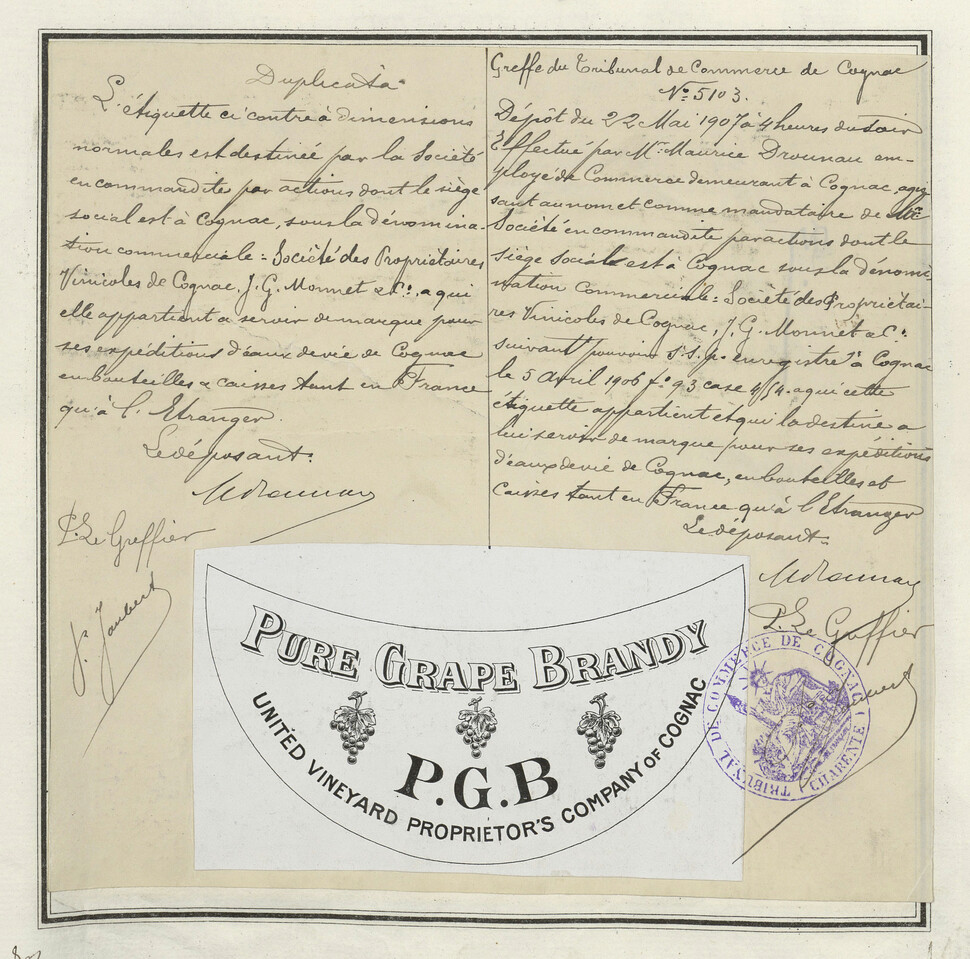 Duplicata
L'étiquette ci contre à dimensions
normales est destinée par la Société
en commandite par actions dont le siège
social est à Cognac, sous la dénomina-
tion commerciale = Société des Propriétaires
Vinicoles de Cognac, J. G. Monnet & Cº. a qui
elle appartient a servir de marque pour
ses expéditions d'eaux de vie de Cognac
en bouteilles & caisses tant en France
qu'à l'Etranger
Le déposant.
P. Le Greffier
Greffe du Tribunal de Commerce de Cognac
Nº 5103.
Dépôt du 22 Mai 1907 à 4 heures du soir
Effectué par Mr. Maurice Drounau em-
ployé de Commerce demeurant à Cognac, agis
sant au nom et comme mandataire de
Société en commandite par actions dont le
siège social est à Cognac sous la dénomi-
nation commerciale = Société des Propriétai-
res Vinicoles de Cognac, J. G. Monnet & Cº.
suivant pouvoir s.s.p. enregistré à Cognac
le 5 Avril 1906 fº 93 case a qui cette
étiquette appartient et qui la destine a
lui servir de marque pour ses expéditions
d'eaux de vie de Cognac, en bouteilles et
caisses tant en France qu'à l'Etranger
Le déposant.
P. Le Greffier
PURE GRAPE BRANDY
P.G.B
UNITED VINEYARD PROPRIETOR'S COMPANY OF COGNAC
TRIBUNAL DE COMMERCE DE COGNAC (CHARENTE)